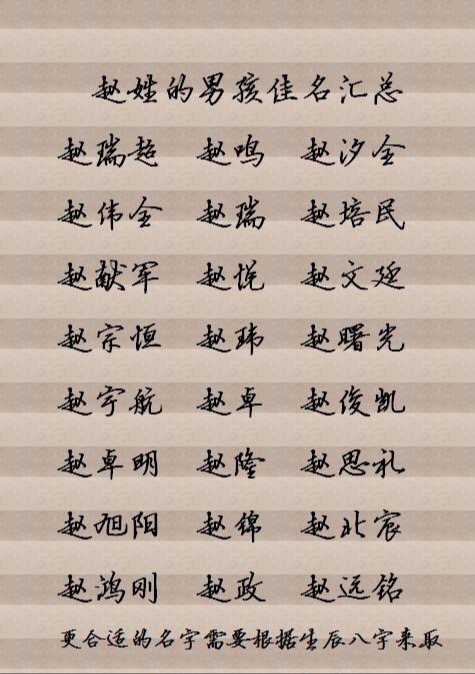 赵姓的男孩佳名汇总
赵瑞超 赵鸣 赵汐全
赵伟全 赵瑞 赵培民
赵献军 赵悦 赵文廷
赵宗恒 赵玮 赵曙光
赵宇航 赵卓 赵俊凯
赵卓明 赵隆 赵思礼
赵旭阳 赵锦 赵北宸
赵鸿刚 赵政 赵远铭
更合适的名字需要根据生辰八字来取